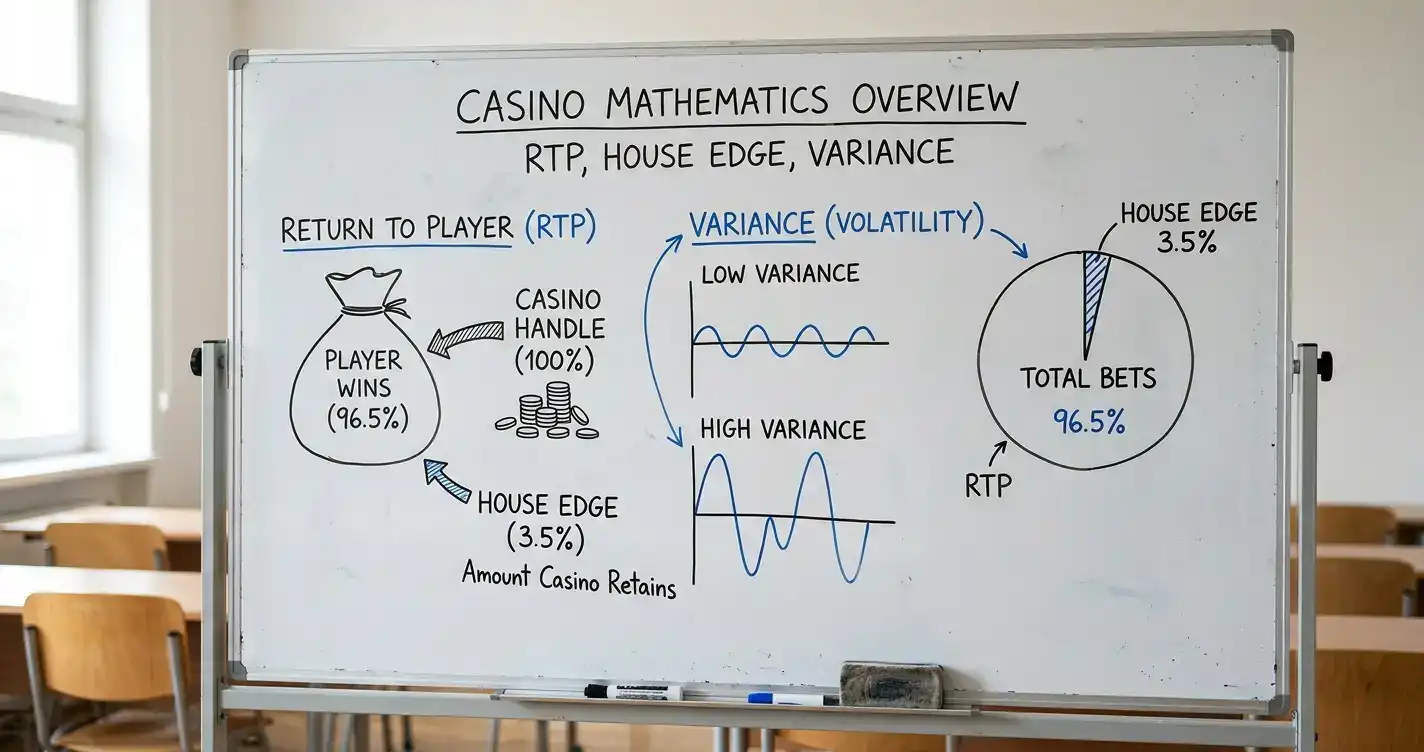 CASINO MATHEMATICS OVERVIEW
RTP, HOUSE EDGE, VARIANCE
RETURN TO PLAYER (RTP)
PLAYER
WINS
(96.5%)
CASINO
HANDLE
(100%)
HOUSE EDGE
(3.5%)
Amount Casino Retains
VARIANCE (VOLATILITY)
LOW VARIANCE
HIGH VARIANCE
HOUSE EDGE
3.5%
TOTAL BETS
96.5%
RTP